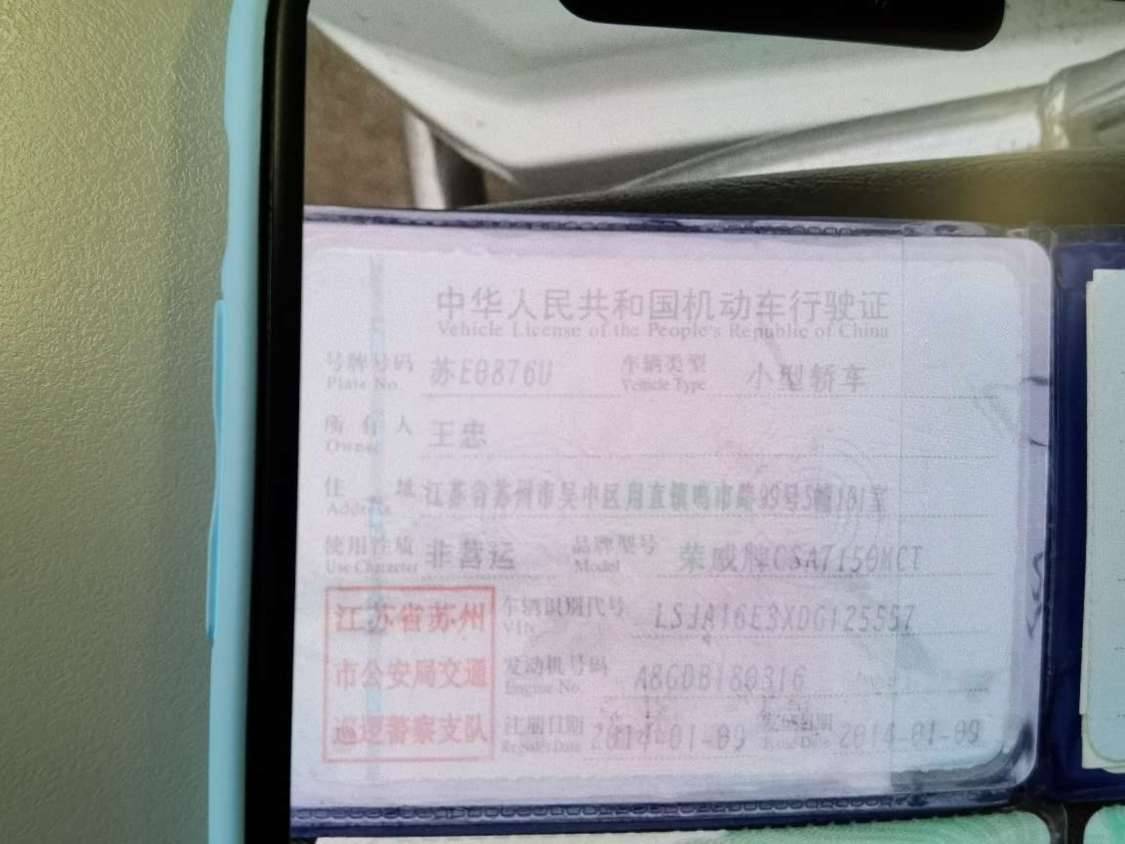 中华人民共和国机动车行驶证
Vehicle License of the People's Republic of China
号牌号码 苏E0876U 车辆类型 小型轿车
Plate No. Vehicle Type
所有人 王忠
Owner
住址 江苏省苏州市吴中区甪直镇鸣市路99号5幢181室
Address
使用性质 非营运 品牌型号 荣威牌CSA7150MCT
Use Character Model
江苏省苏州 车辆识别代号 LSJA16E3XDG125557
VIN
市公安局交通 发动机号码 A8GDB180316
Engine No.
巡逻警察支队 注册日期 2014-01-09 发证日期 2014-01-09
Register Date Issue Date